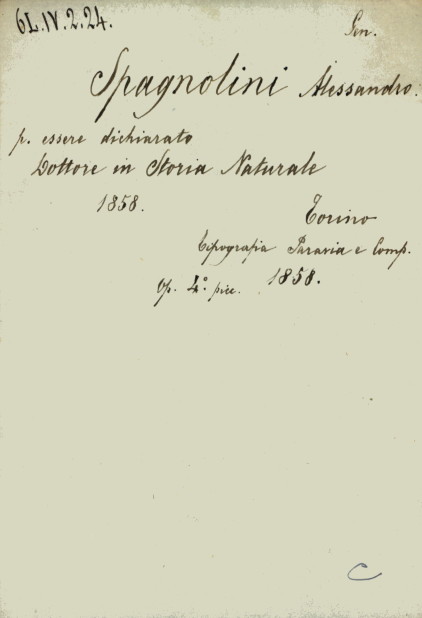 6L.IV.2.24.
Gen.
Spagnolini Alessandro.
p. essere dichiarato
Dottore in Storia Naturale
1858.
Torino
Tipografia Paravia e Comp.
Op. 4.° picc. 1858.
C